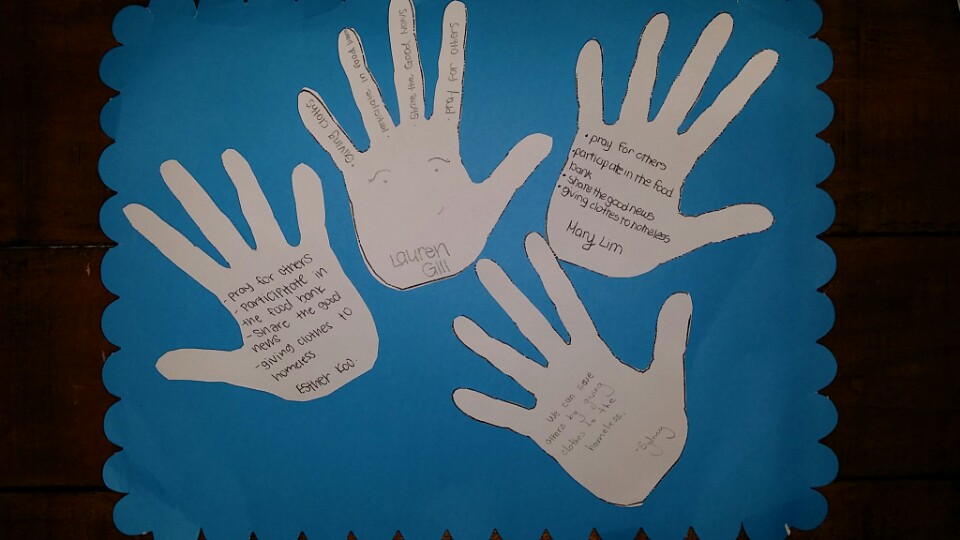 • Giving cloths
• participate in food bank
• Share the Good News
• pray for others
Lauren
Gill
• pray for others
• participate in the food
bank
• share the good news
• giving clothes to homeless
Mary Lim
- pray for others
- participitate in
the food bank
- Share the good
news
- giving clothes to
homeless
Esther Koo.
We can care
others by giving
clothes to the
homeless.
- Sydney